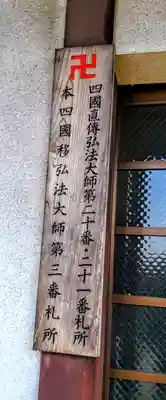 卍
四國直傳弘法大師第二十番・二十一番札所
本四國移弘法大師第三番札所